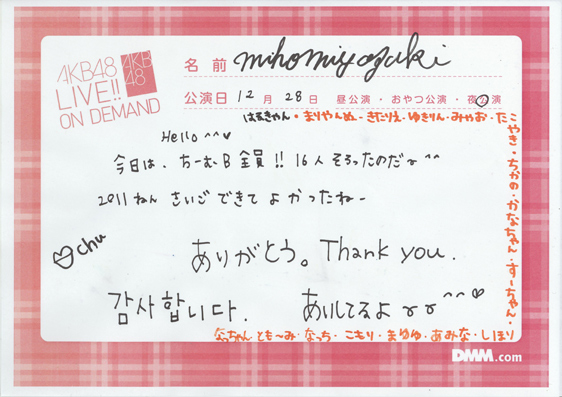 AKB48
LIVE!!
ON DEMAND
AKB
48
名前 mihomiyazaki
公演日 12月 28日 昼公演・おやつ公演・夜公演
はるきゃん・まりやんぬ・きたりえ・ゆきりん・みゃお・た
こやき・ちかの・かなちゃん・すーちゃん・
Hello ^^♥
今日は、ちーむB全員!! 16人そろったのだ〜^^
2011ねん さいごできてよかったねー
chu
ありがとう。Thank you.
감사합니다. あいしてるよ〜〜^^♡
なっちゃん とも〜み・なっち・こもり・まゆゆ・あみな・しほり
DMM.com